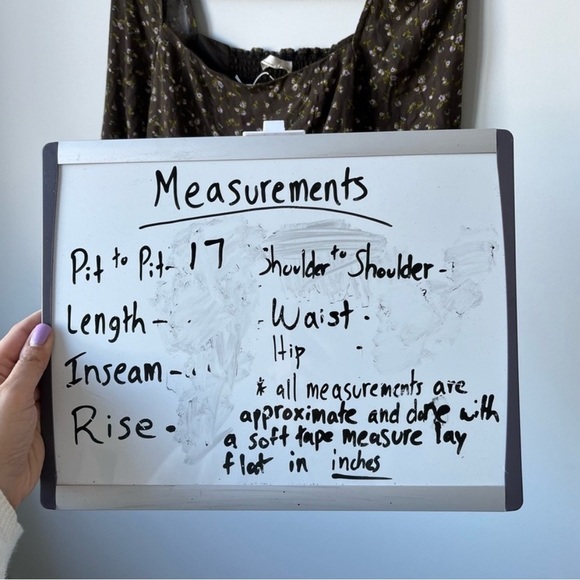 Measurements
Pit to Pit- 17
Shoulder to Shoulder -
Length -
- Waist .
Inseam -
Hip -
Rise .
* all measurements are
approximate and done with
a soft tape measure lay
flat in inches